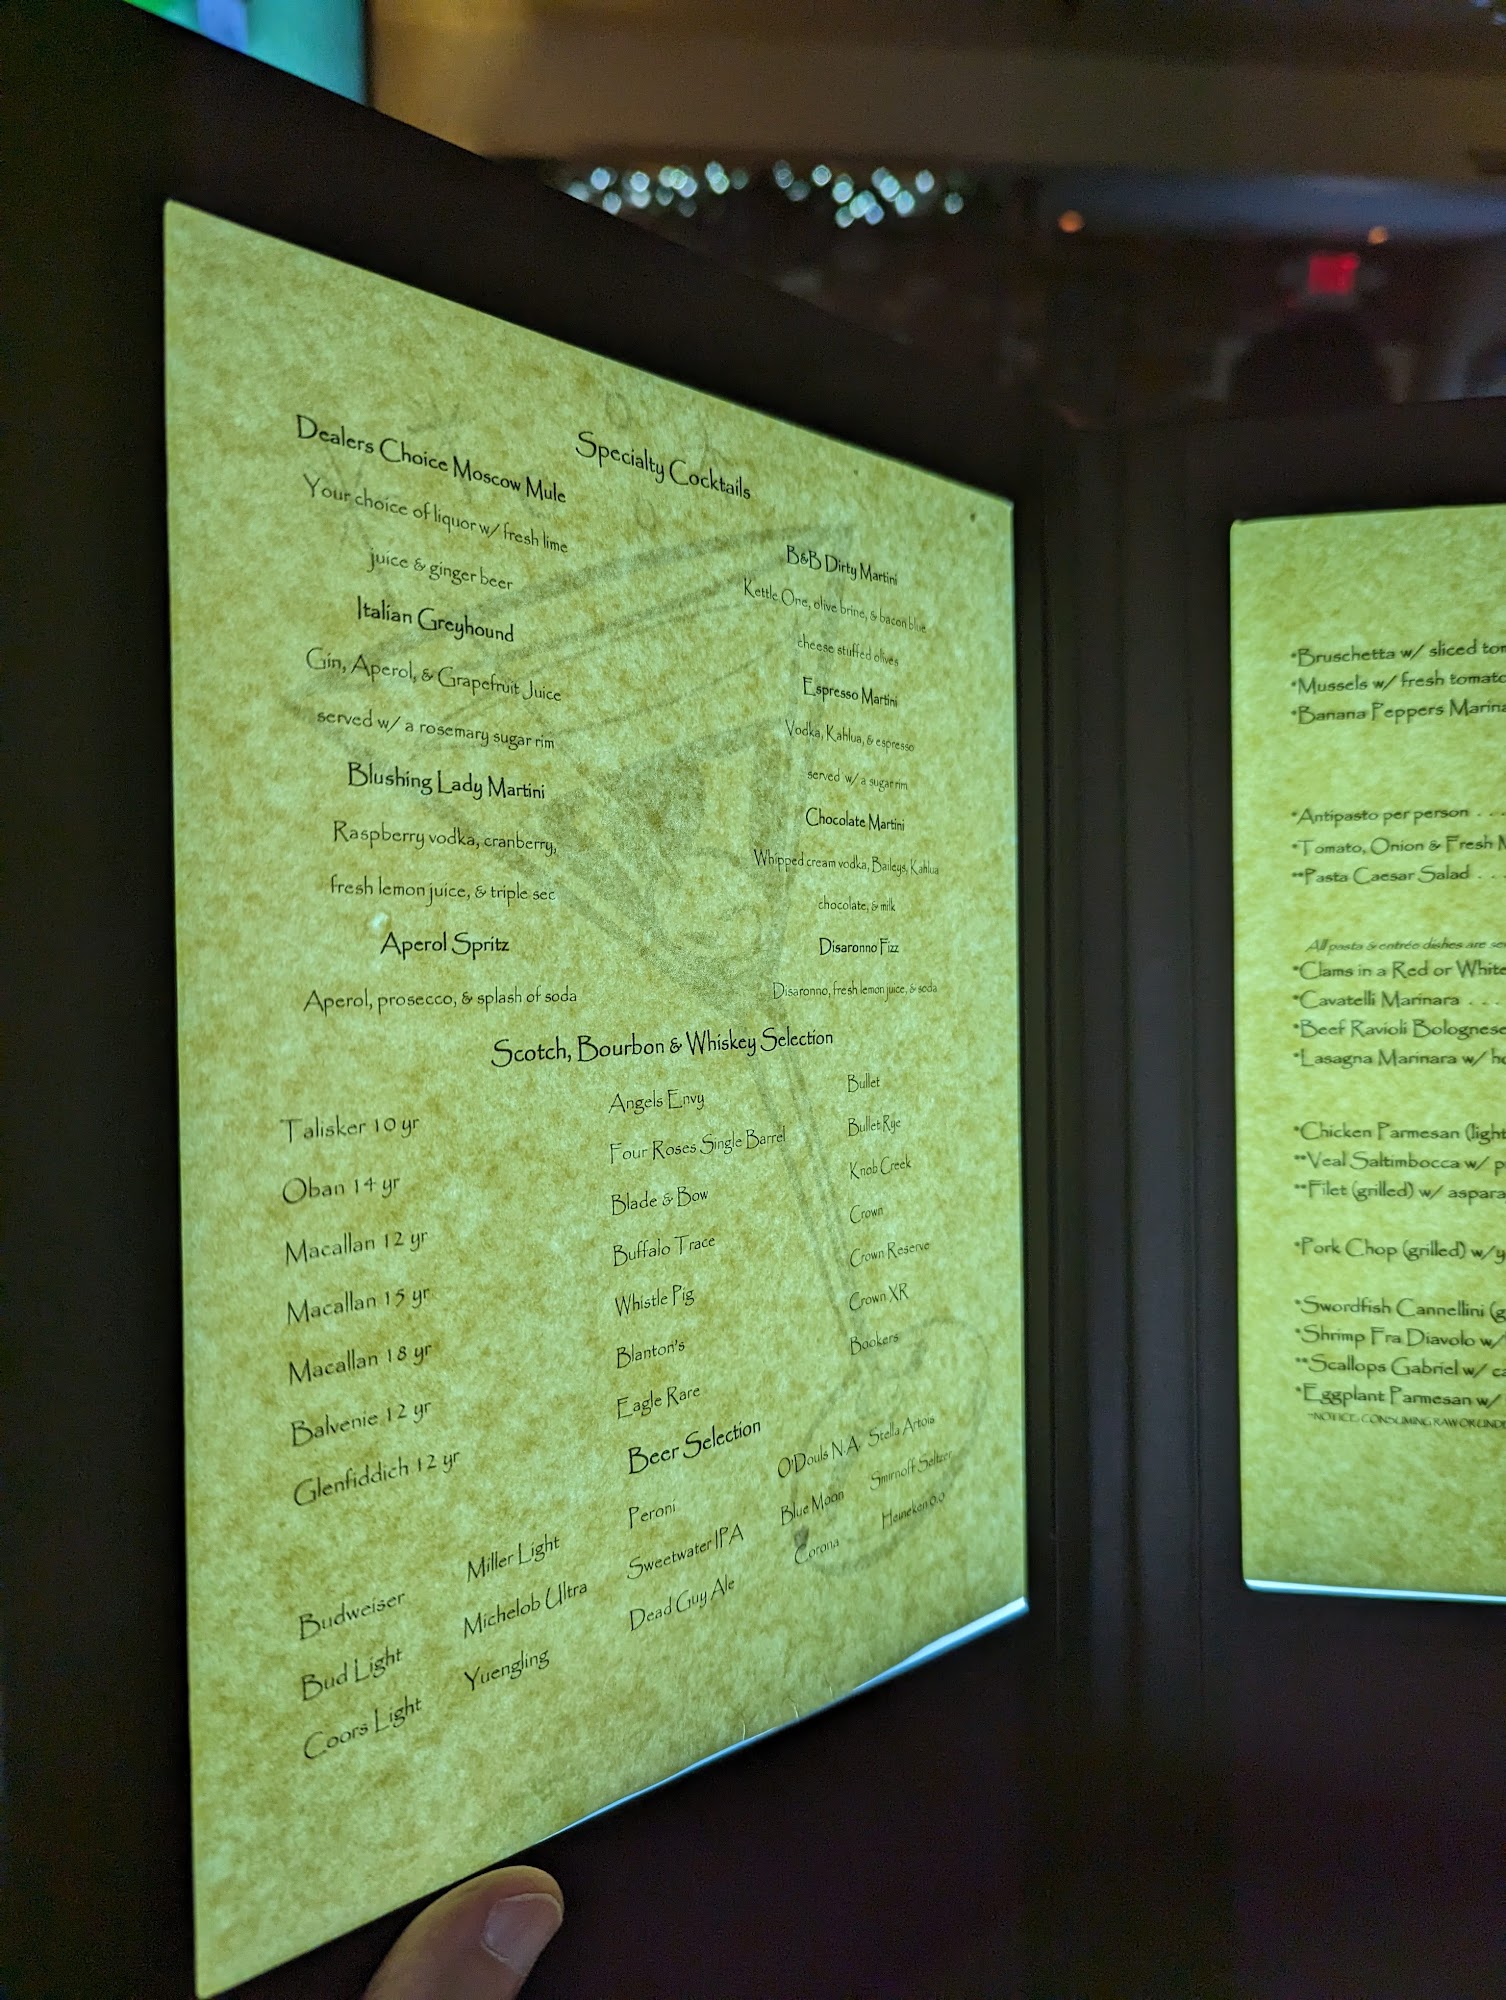 Specialty Cocktails
Dealers Choice Moscow Mule
Your choice of liquor w/ fresh lime
juice & ginger beer
Italian Greyhound
Gin, Aperol, & Grapefruit Juice
served w/ a rosemary sugar rim
Blushing Lady Martini
Raspberry vodka, cranberry,
fresh lemon juice, & triple sec
Aperol Spritz
Aperol, prosecco, & splash of soda
B&B Dirty Martini
Kettle One, olive brine, & bacon blue
cheese stuffed olives
Espresso Martini
Vodka, Kahlua, & espresso
served w/ a sugar rim
Chocolate Martini
Whipped cream vodka, Baileys, Kahlua
chocolate, & milk
Disaronno Fizz
Disaronno, fresh lemon juice, & soda
Scotch, Bourbon & Whiskey Selection
Talisker 10 yr
Oban 14 yr
Macallan 12 yr
Macallan 15 yr
Macallan 18 yr
Balvenie 12 yr
Glenfiddich 12 yr
Angels Envy
Four Roses Single Barrel
Blade & Bow
Buffalo Trace
Whistle Pig
Blanton's
Eagle Rare
Bullet
Bullet Rye
Knob Creek
Crown
Crown Reserve
Crown XR
Bookers
Beer Selection
Budweiser
Bud Light
Coors Light
Miller Light
Michelob Ultra
Yuengling
Peroni
Sweetwater IPA
Dead Guy Ale
O'Douls N.A.
Blue Moon
Corona
Stella Artois
Smirnoff Seltzer
Heineken 0.0
*Bruschetta w/ sliced
*Mussels w/ fresh
*Banana Peppers
*Antipasto per person . .
*Tomato, Onion & Fresh
**Pasta Caesar Salad . . .
All pasta & entrée dishes are
*Clams in a Red or White
*Cavatelli Marinara . . .
*Beef Ravioli Bolognese
*Lasagna Marinara w/
*Chicken Parmesan (light
**Veal Saltimbocca w/
**Filet (grilled) w/
*Pork Chop (grilled) w/
*Swordfish Cannellini
*Shrimp Fra Diavolo w/
**Scallops Gabriel w/
*Eggplant Parmesan w/
*NOTICE: CONSUMING RAW OR